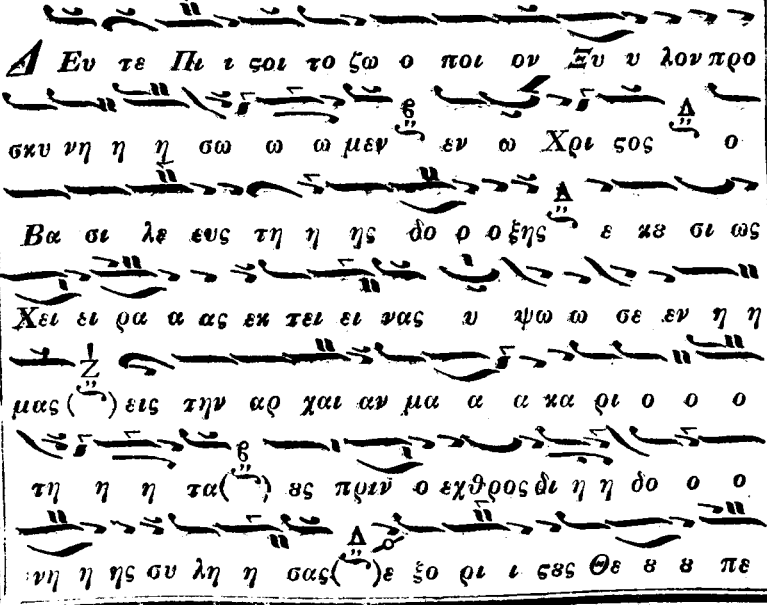 Δ Ευ τε Πι ι ϛοι το ζω ο ποι ον Ξυ υ λον προ
σκυ νη η η σω ω ω μεν εν ω Χρι ϛος ο
Βα σι λε ευς τη η ης δο ο ο ξης ε κȣ σι ως
Χει ει ρα α ας εκ τει ει νας υ ψω ω σε εν η η
μας ( ) εις την αρ χαι αν μα α α κα ρι ο ο ο
τη η η τα( ) ȣς πριν ο εχθρος δι η η δο ο ο
νη η ης συ λη η σας( )ε ξο ρι ι ϛȣς Θε ȣ ȣ πε